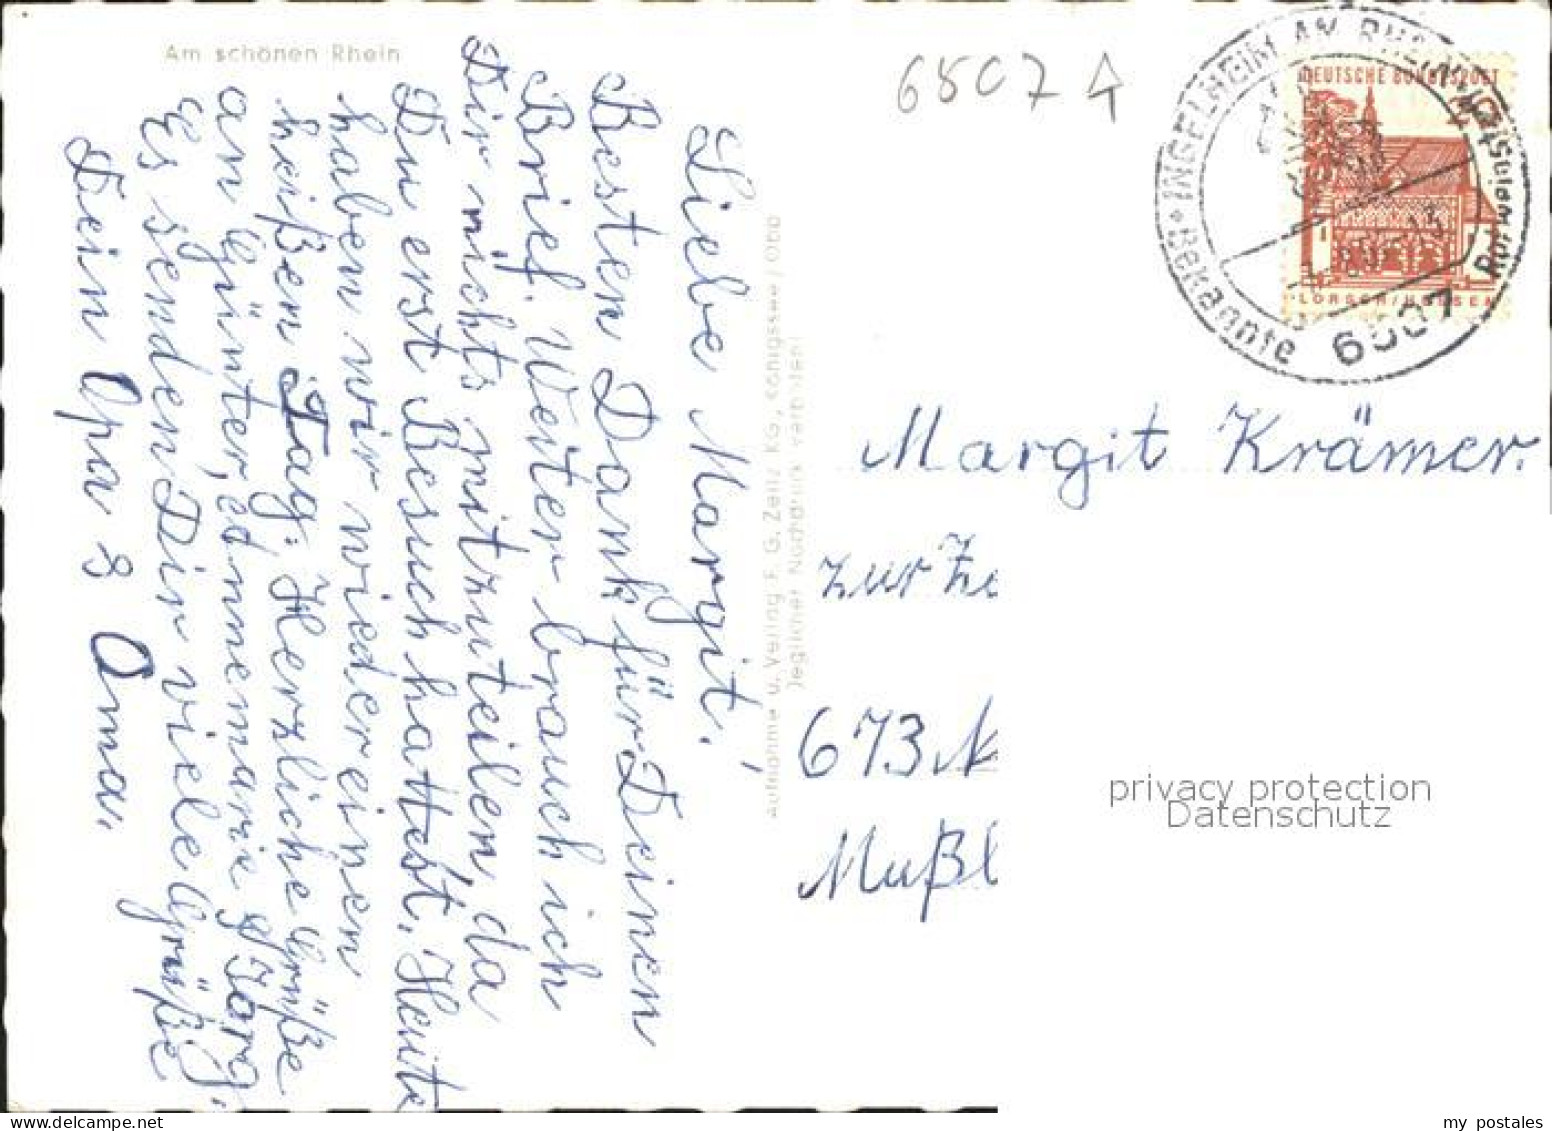 Am schönen Rhein
Liebe Margit!
Besten Dank für Deinen
Brief. Weiter brauch ich
Dir nichts mitzuteilen, da
Du erst Besuch hattest. Heute
haben wir wieder einen
heißen Tag. Herzliche Grüße
an Günter, Annemarie & Jörg.
Es senden Dir viele Grüße
Dein Opa & Oma.
aufnahme u. Verlag F. G. Zeitz KG, Königssee / Obb
Jeglicher Nachdruck verboten!
6507
DEUTSCHE BUNDESPOST
LORSCH/HESSEN
INGELHEIM AM RHEIN
Bekannte
Rotweinstadt
6507
Margit Krämer.
zur Ze
673 N
Mußl
privacy protection
Datenschutz
my postales